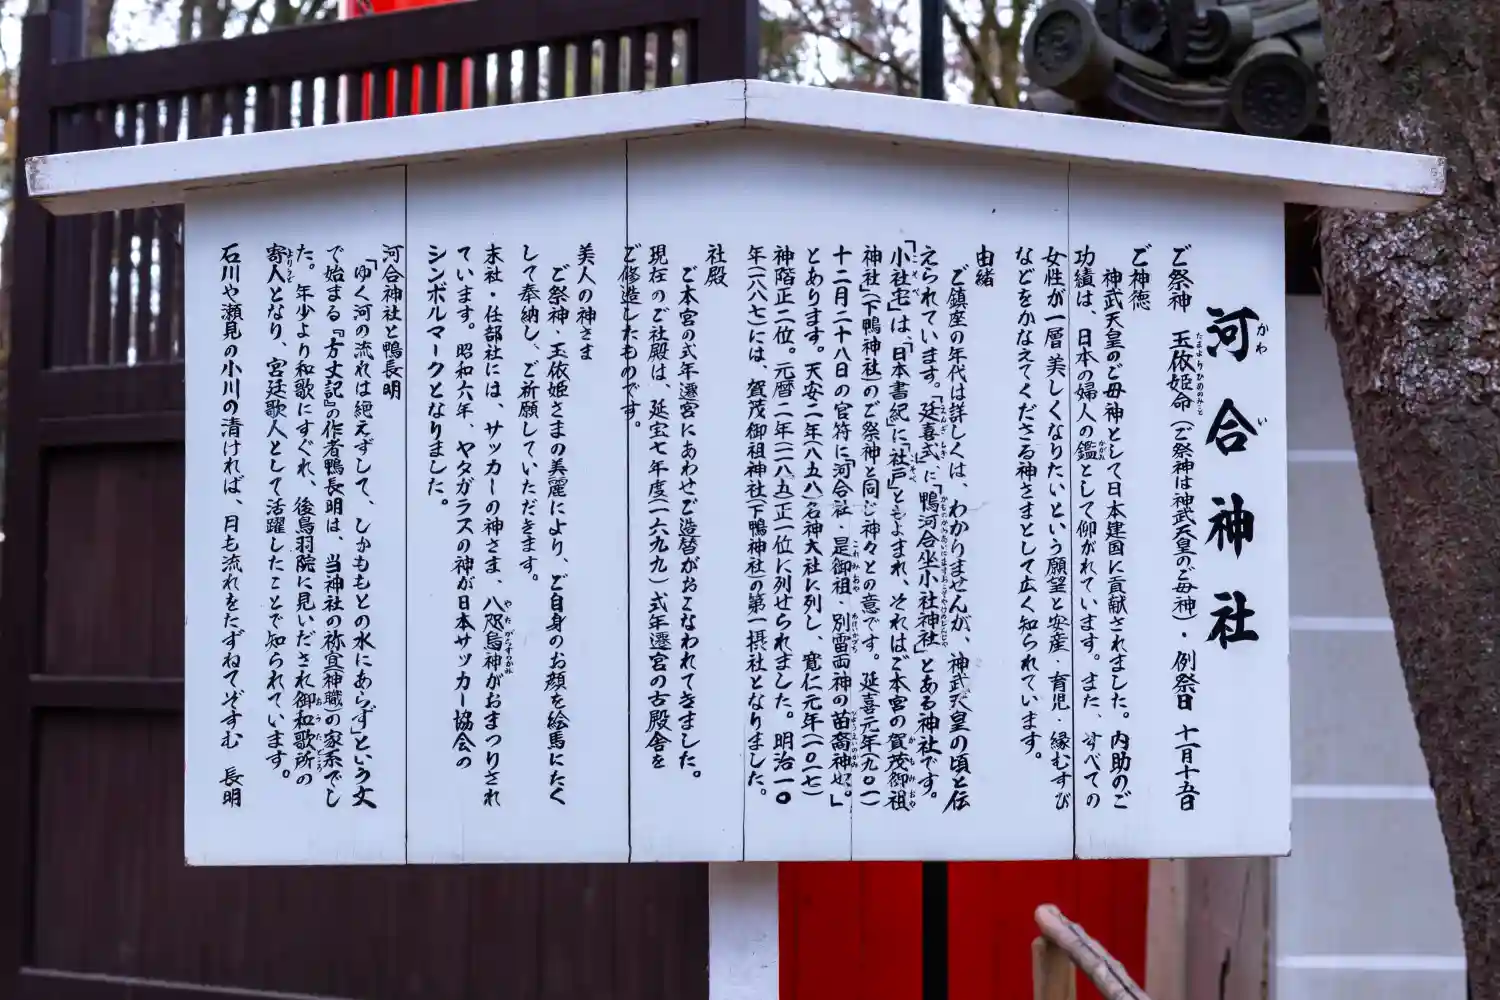 河合神社
かわ い
ご祭神 玉依姫命(ご祭神は神武天皇のご母神)・例祭日 十一月十五日
たまよりひめのみこと
ご神徳
神武天皇のご母神として日本建国に貢献されました。内助のご
功績は、日本の婦人の鑑として仰がれています。また、すべての
かがみ
女性が一層美しくなりたいという願望と安産・育児・縁むすび
などをかなえてくださる神さまとして広く知られています。
由緒
ご鎮座の年代は詳しくは、わかりませんが、神武天皇の頃と伝
えられています。「延喜式」に「鴨河合坐小社神社」とある神社です。
えんぎしき
「小社宅」は、「日本書紀」に「社戸」ともよまれ、それはご本宮の賀茂御祖
こそべ こそべ かもみおや
神社」(下鴨神社)のご祭神と同じ神々との意です。延喜元年(九〇一)
十二月二十八日の官符に「河合社・是御祖・別雷両神の苗裔神也。」
これみおや わけいかづち
とあります。天安二年(八五八)名神大社に列し、寛仁元年(一〇一七)
神階正二位。元暦二年(一一八五)正一位に列せられました。明治一〇
年(一八七七)には、賀茂御祖神社(下鴨神社)の第一摂社となりました。
社殿
ご本宮の式年遷宮にあわせご造替がおこなわれてきました。
現在のご社殿は、延宝七年度(一六七九)式年遷宮の古殿舎を
ご修造したものです。
美人の神さま
ご祭神・玉依姫さまの美麗により、ご自身のお顔を絵馬にたく
して奉納し、ご祈願していただきます。
末社・任部社には、サッカーの神さま、八咫烏神がおまつりされ
やたがらすのかみ
ています。昭和六年、ヤタガラスの神が日本サッカー協会の
シンボルマークとなりました。
河合神社と鴨長明
「ゆく河の流れは絶えずして、しかももとの水にあらず」という文
で始まる『方丈記』の作者鴨長明は、当神社の祢宜(神職)の家系でし
た。年少より和歌にすぐれ、後鳥羽院に見いだされ御和歌所の
おうたどころ
寄人となり、宮廷歌人として活躍したことで知られています。
よりうど
石川や瀬見の小川の清ければ、月も流れをたずねてぞすむ 長明